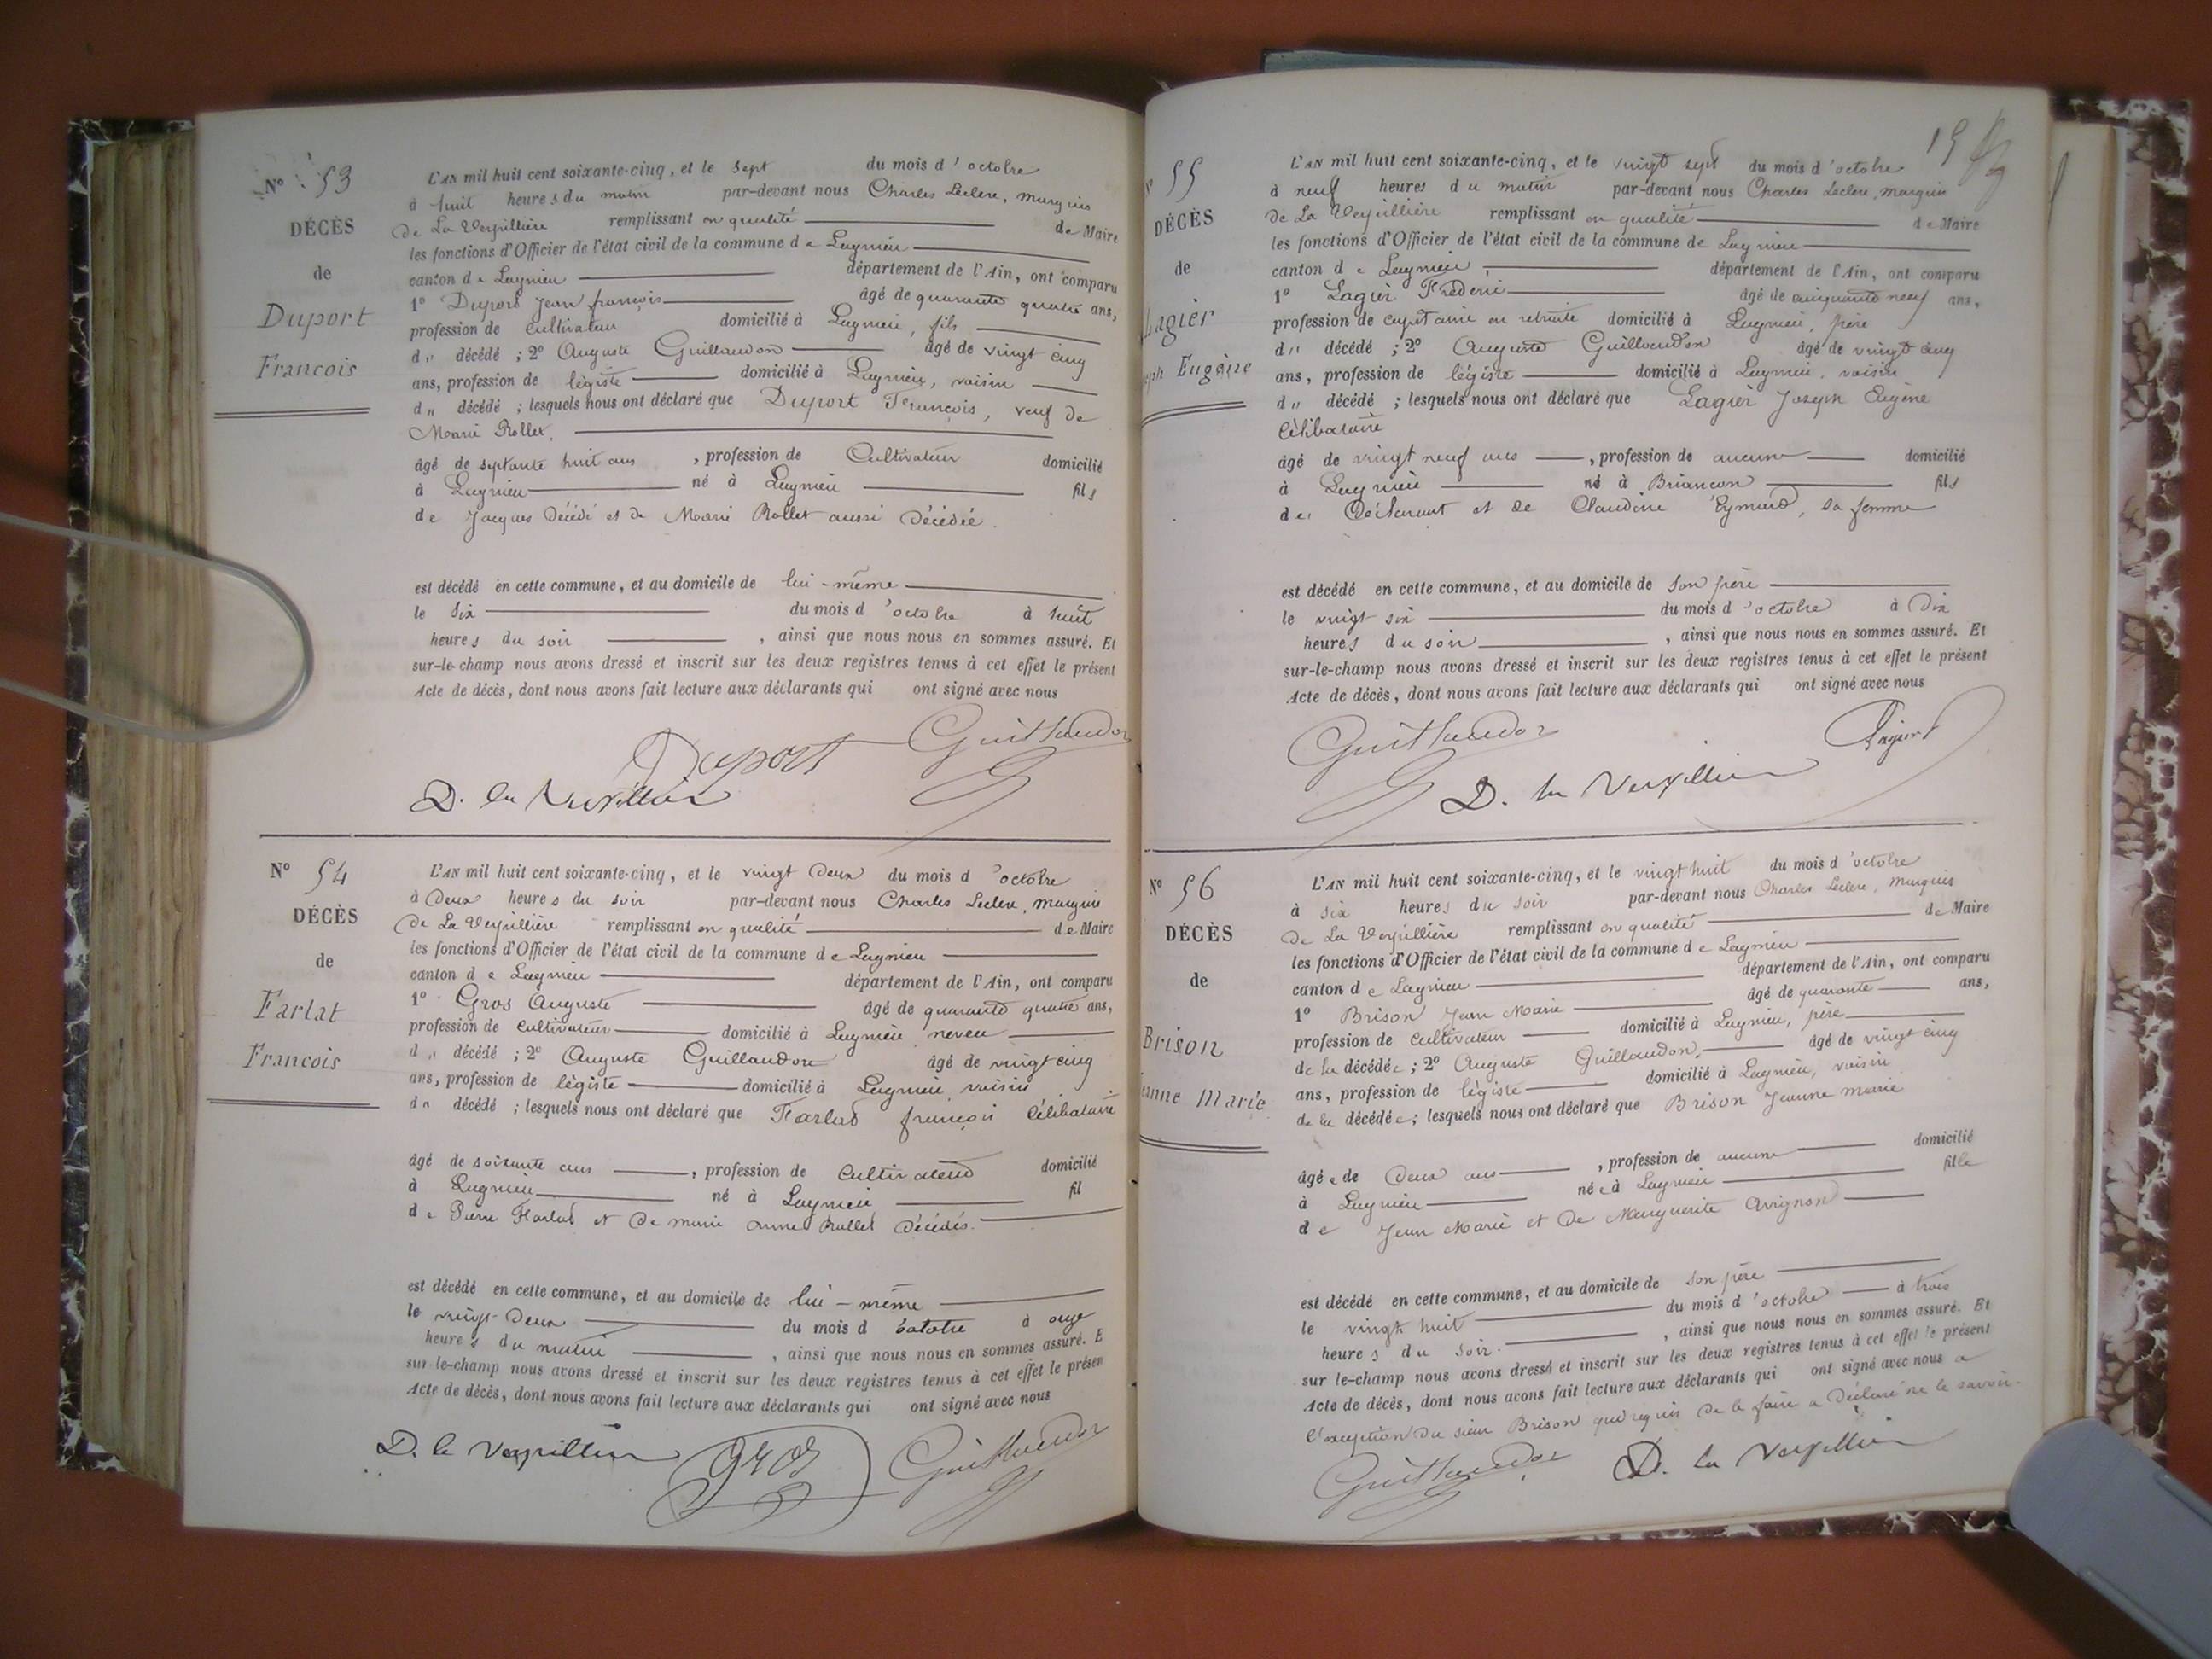 N° 53
DÉCÈS
de
Duport
Francois
L'AN mil huit cent soixante-cinq, et le sept du mois d'octobre
à huit heures du matin par-devant nous Charles Leclerc, marquis
de La Verpillière remplissant en qualité de Maire
les fonctions d'Officier de l'état civil de la commune de Lagnieu
canton de Lagnieu département de l'Ain, ont comparu
1° Duport Jean françois âgé de quarante quatre ans,
profession de cultivateur domicilié à Lagnieu, fils
du décédé ; 2° Auguste Guillaudon âgé de vingt cinq
ans, profession de légiste domicilié à Lagnieu, voisin
du décédé ; lesquels nous ont déclaré que Duport François, veuf de
Marie Rollet,
âgé de septante huit ans, profession de Cultivateur domicilié
à Lagnieu né à Lagnieu fils
de Jacques décédé et de Marie Rollet aussi décédée.
est décédé en cette commune, et au domicile de lui-même
le six du mois d'octobre à huit
heures du soir, ainsi que nous nous en sommes assuré. Et
sur-le-champ nous avons dressé et inscrit sur les deux registres tenus à cet effet le présent
Acte de décès, dont nous avons fait lecture aux déclarants qui ont signé avec nous
Duport Guillaudon
D. la Verpillière
N° 54
DÉCÈS
de
Farlat
Francois
L'AN mil huit cent soixante-cinq, et le vingt deux du mois d'octobre
à deux heures du soir par-devant nous Charles Leclerc, marquis
de La Verpillière remplissant en qualité de Maire
les fonctions d'Officier de l'état civil de la commune de Lagnieu
canton de Lagnieu département de l'Ain, ont comparu
1° Gros Auguste âgé de quarante quatre ans,
profession de cultivateur domicilié à Lagnieu neveu
du décédé ; 2° Auguste Guillaudon âgé de vingt cinq
ans, profession de légiste domicilié à Lagnieu, voisin
du décédé ; lesquels nous ont déclaré que Farlat françois Célibataire
âgé de soixante ans, profession de Cultivateur domicilié
à Lagnieu né à Lagnieu fil
de Pierre Farlat et de marie anne Rollet décédés.
est décédé en cette commune, et au domicile de lui-même
le vingt-deux du mois d'octobre à onze
heures du matin, ainsi que nous nous en sommes assuré. E
sur-le-champ nous avons dressé et inscrit sur les deux registres tenus à cet effet le présen
Acte de décès, dont nous avons fait lecture aux déclarants qui ont signé avec nous
D. la Verpillière gros Guillaudon
19
55
DÉCÈS
de
Lagier
eph Eugène
L'AN mil huit cent soixante-cinq, et le vingt sept du mois d'octobre
à neuf heures du matin par-devant nous Charles Leclerc, marquis
de La Verpillière remplissant en qualité de Maire
les fonctions d'Officier de l'état civil de la commune de Lagnieu
canton de Lagnieu, département de l'Ain, ont comparu
1° Lagier Frédéric âgé de cinquante neuf ans,
profession de capitaine en retraite domicilié à Lagnieu, père
du décédé ; 2° Auguste Guillaudon âgé de vingt cinq
ans, profession de légiste domicilié à Lagnieu, voisin
du décédé ; lesquels nous ont déclaré que Lagier Joseph Eugène
Célibataire
âgé de vingt neuf ans, profession de aucune domicilié
à Lagnieu né à Briancon fils
du Déclarant et de Claudine Eymard, sa femme
est décédé en cette commune, et au domicile de son père
le vingt six du mois d'octobre à Dix
heures du soir, ainsi que nous nous en sommes assuré. Et
sur-le-champ nous avons dressé et inscrit sur les deux registres tenus à cet effet le présent
Acte de décès, dont nous avons fait lecture aux déclarants qui ont signé avec nous
Guillaudon
D. la Verpillière
N° 56
DÉCÈS
de
Brison
eanne Marie
L'AN mil huit cent soixante-cinq, et le vingt huit du mois d'octobre
à six heures du soir par-devant nous Charles Leclerc, marquis
de La Verpillière remplissant en qualité de Maire
les fonctions d'Officier de l'état civil de la commune de Lagnieu
canton de Lagnieu département de l'Ain, ont comparu
1° Brison Jean Marie âgé de quarante ans,
profession de cultivateur domicilié à Lagnieu, père
de la décédée ; 2° Auguste Guillaudon, âgé de vingt cinq
ans, profession de légiste domicilié à Lagnieu, voisin
de la décédée ; lesquels nous ont déclaré que Brison Jeanne marie
âgée de deux ans, profession de aucune domicilié
à Lagnieu née à Lagnieu fille
de Jean Marie et de Marguerite Avignon
est décédé en cette commune, et au domicile de son père
le vingt huit du mois d'octobre à trois
heures du soir, ainsi que nous nous en sommes assuré. Et
sur le-champ nous avons dressé et inscrit sur les deux registres tenus à cet effet le présent
Acte de décès, dont nous avons fait lecture aux déclarants qui ont signé avec nous a
l'exception du sieur Brison qui requis de le faire a déclaré ne le savoir.
Guillaudon D. la Verpillière